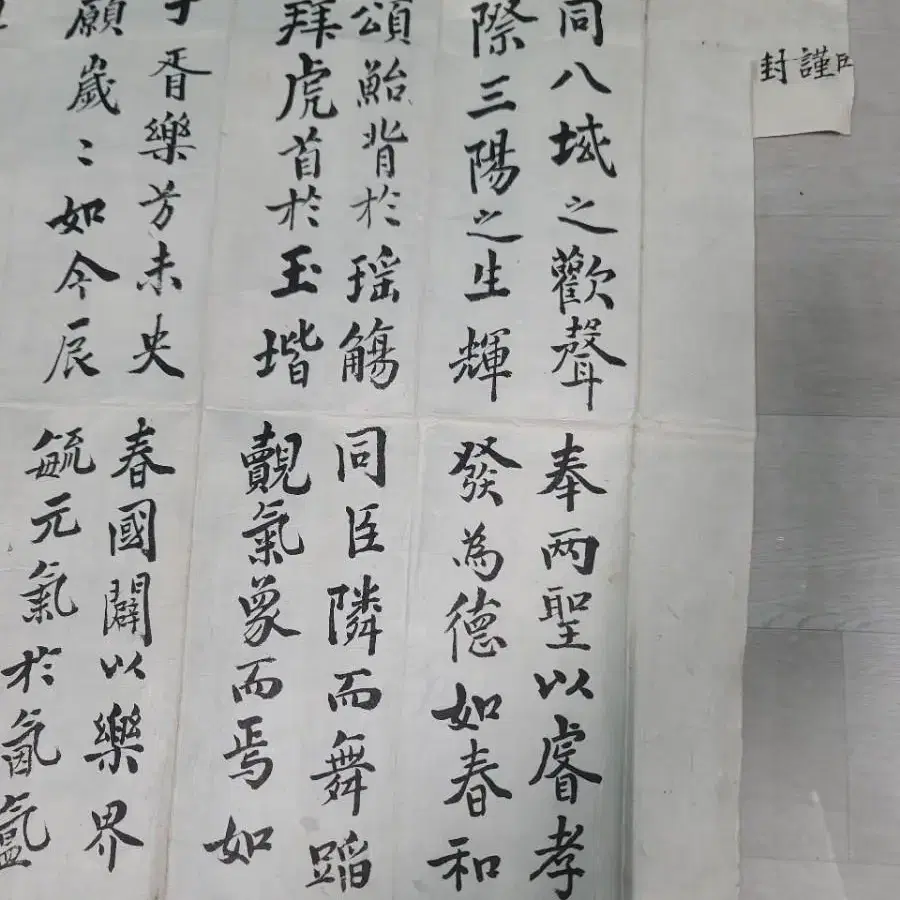 謹封
同八域之歡聲
際三陽之生輝
頌鮐背於瑤觴
拜虎首於玉堦
于胥樂兮未央
願歲〻如今辰
奉两聖以睿孝
發為德如春和
同臣隣而舞蹈
覿氣象而焉如
春國闢以樂界
毓元氣於氤氳